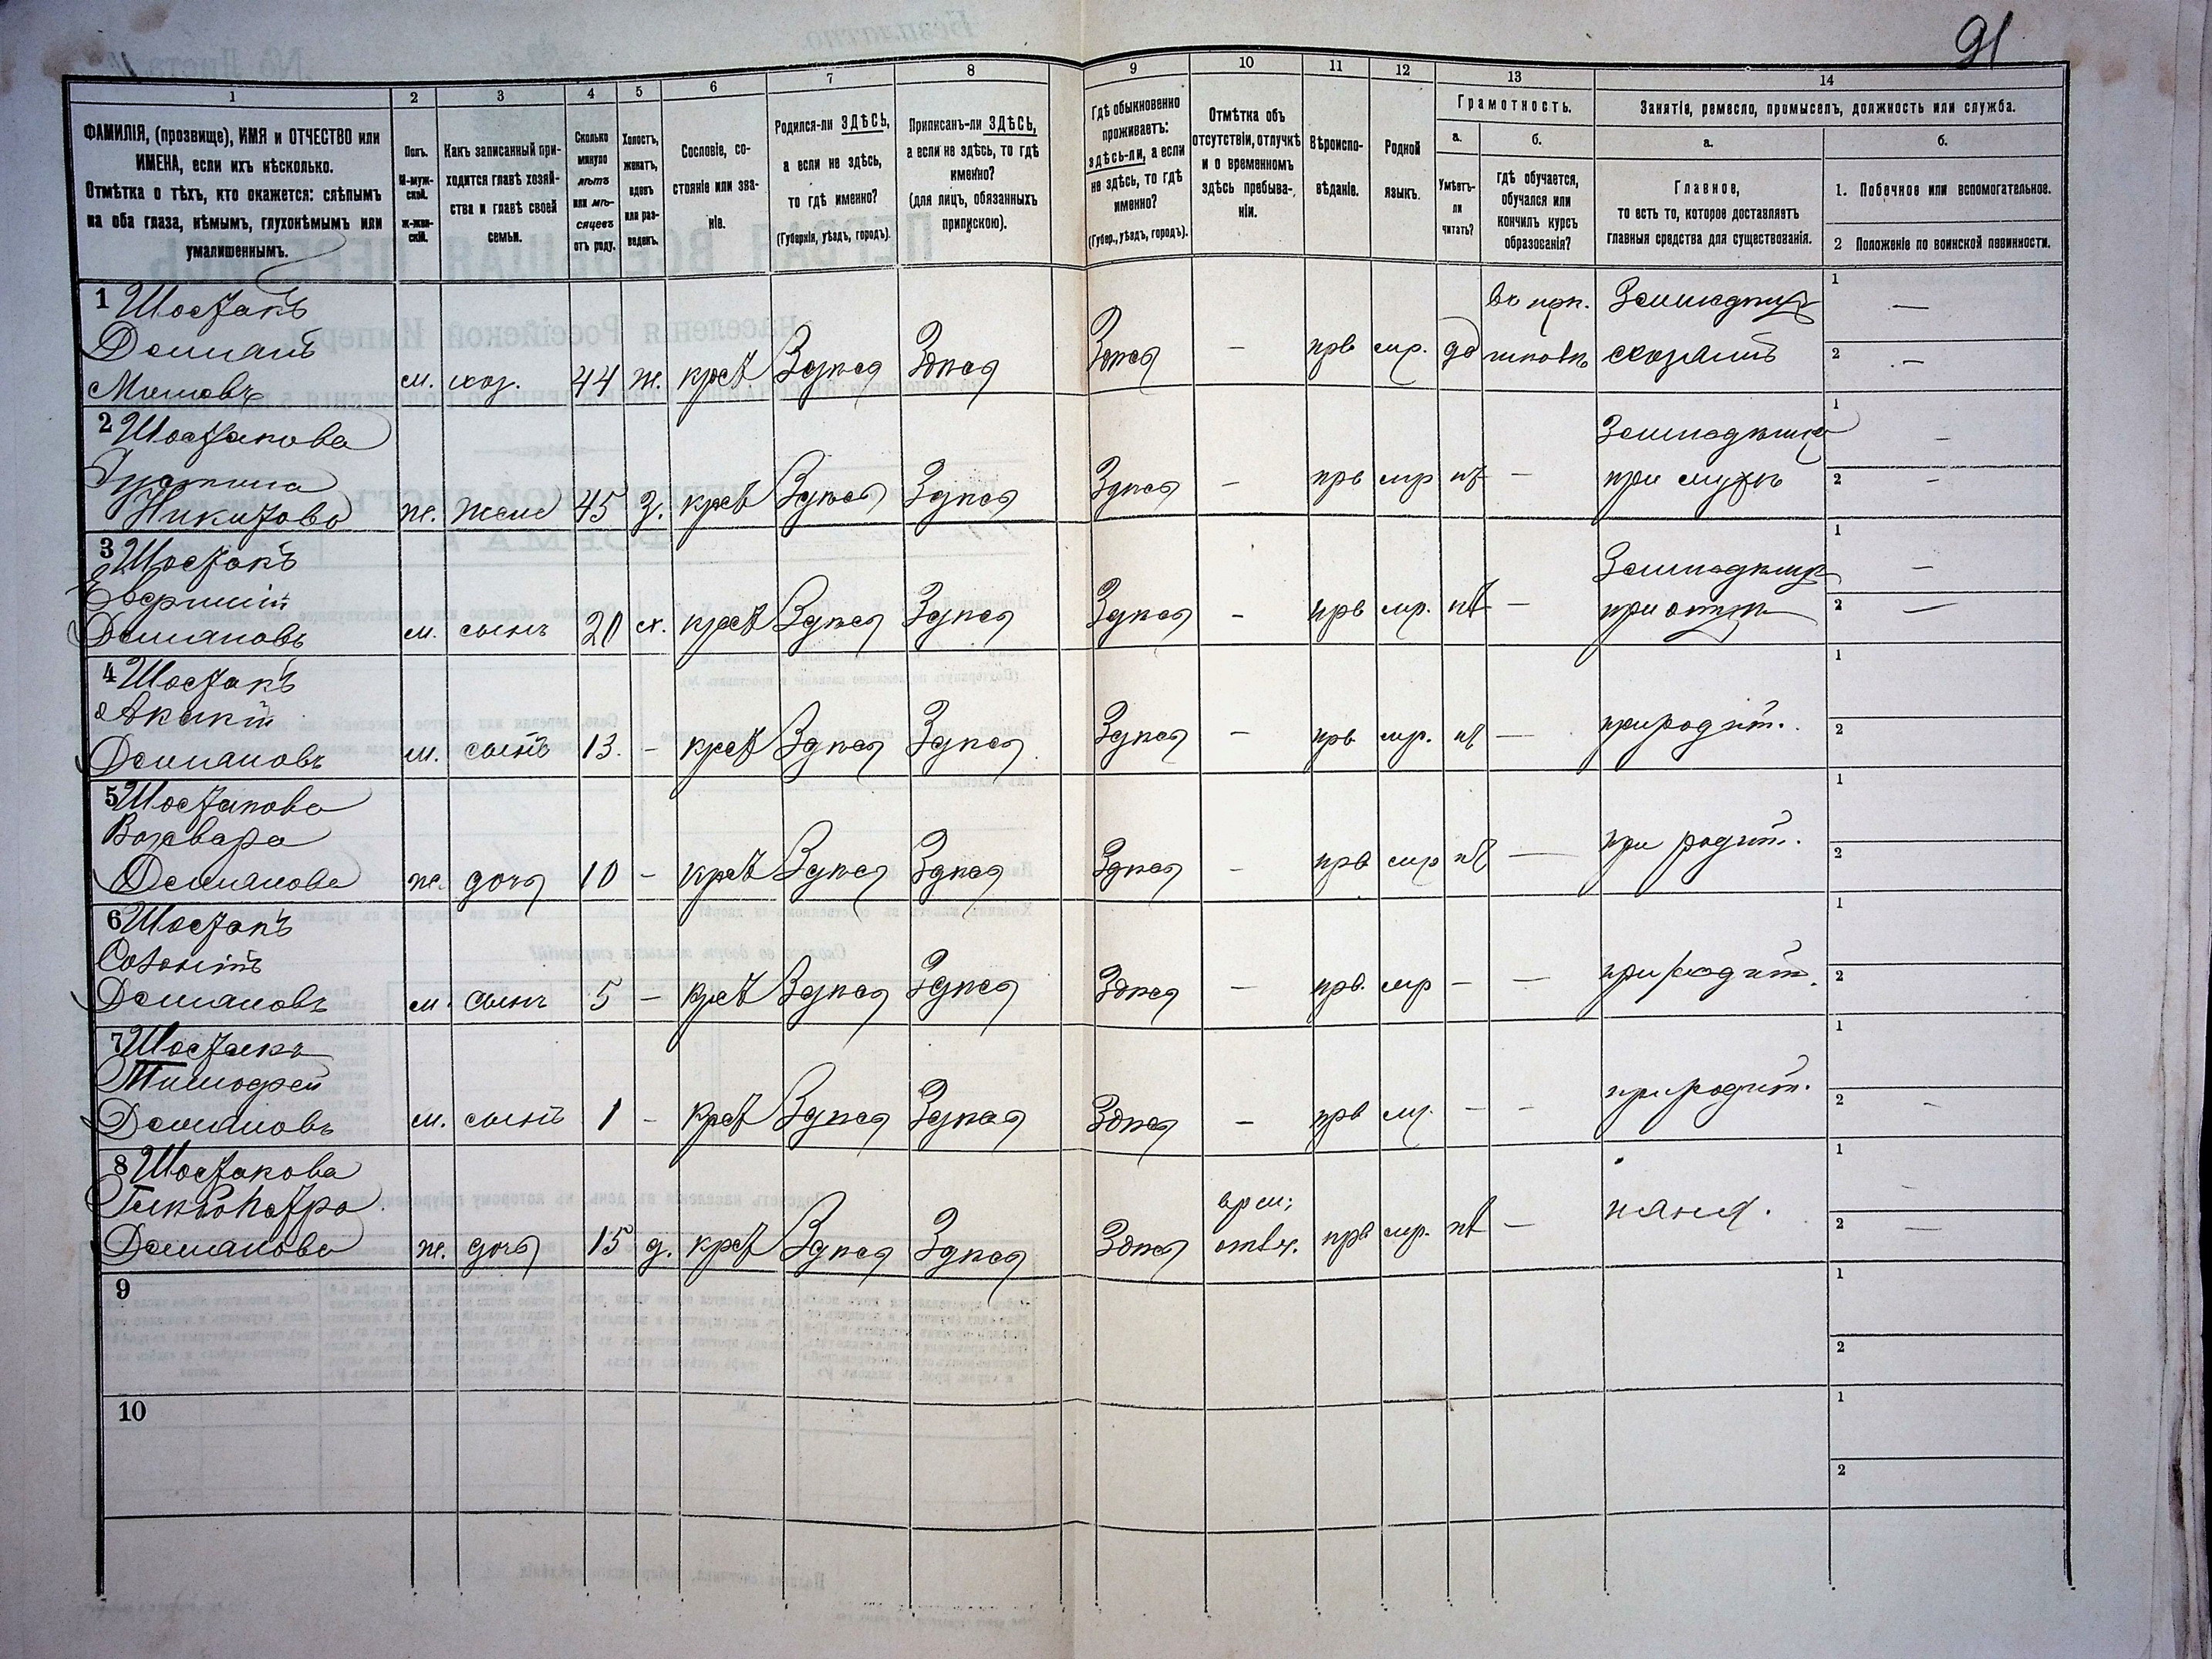 91
1
2
3
4
5
6
7
8
9
10
11
12
13
14
ФАМИЛІЯ, (прозвище), ИМЯ и ОТЧЕСТВО или
ИМЕНА, если ихъ нѣсколько.
Отмѣтка о тѣхъ, кто окажется: слѣпымъ
на оба глаза, нѣмымъ, глухонѣмымъ или
умалишеннымъ.
Полъ.
М-муж-
ской.
Ж-жен-
скій.
Какъ записанный при-
ходится главѣ хозяй-
ства и главѣ своей
семьи.
Сколько
минуло
лѣтъ
или мѣ-
сяцевъ
отъ роду.
Холостъ,
женатъ,
вдовъ
или раз-
веденъ.
Сословіе, со-
стояніе или зва-
ніе.
Родился-ли ЗДѢСЬ,
а если не здѣсь,
то гдѣ именно?
(Губернія, уѣздъ, городъ).
Приписанъ-ли ЗДѢСЬ,
а если не здѣсь, то гдѣ
именно?
(для лицъ, обязанныхъ
припискою).
Гдѣ обыкновенно
проживаетъ:
здѣсь-ли, а если
не здѣсь, то гдѣ
именно?
(Губер., уѣздъ, городъ).
Отмѣтка объ
отсутствіи, отлучкѣ
и о временномъ
здѣсь пребыва-
ніи.
Вѣроиспо-
вѣданіе.
Родной
языкъ.
Грамотность.
а.
Умѣетъ-
ли
читать?
б.
гдѣ обучается,
обучался или
кончилъ курсъ
образованія?
Занятіе, ремесло, промыселъ, должность или служба.
а.
Главное,
то есть то, которое доставляетъ
главныя средства для существованія.
б.
1. Побочное или вспомогательное.
2 Положеніе по воинской повинности.
1 Шостакъ
Демианъ
м. хоз. 44 ж. крест Здѣся Здѣся Здѣся — прв мр. да школѣ 1 — 2 —
2 Шостакова
Никитова ж. жена 45 з. крест Здѣся Здѣся Здѣся — прв мр нѣ — при мужѣ 1 — 2 —
3 Шостакъ
Демиановъ м. сынъ 20 х. крест Здѣся Здѣся Здѣся — прв мр. нѣ — при отцѣ 1 — 2 —
4 Шостакъ
Акакий
Демиановъ м. сынъ 13. — крест Здѣся Здѣся Здѣся — прв мр. нѣ — при родит. 1 2
5 Шостакова
Варвара
Демианова ж. дочь 10 — крест Здѣся Здѣся Здѣся — прв мр нѣ — при родит. 1 2
6 Шостакъ
Демиановъ м. сынъ 5 — крест Здѣся Здѣся Здѣся — прв. мр — — при родит. 1 2
7 Шостакъ
Тимофей
Демиановъ м. сынъ 1 — крест Здѣся Здѣся Здѣся — прв мр. — — при родит. 1 2 —
8 Шостакова
Демианова ж. дочь 15 д. крест Здѣся Здѣся Здѣся врем: отлч. прв мр. нѣ — 1 2 —
9 1 2
10 1 2